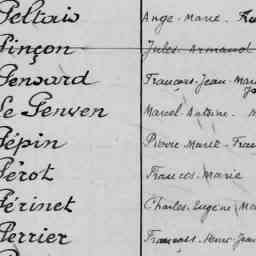 Peltais Ange-Marie.
Pinçon Jules Armand
Pensard François-Jean-Marie
Le Penven Marcel Antoine.
Pépin Pierre Marie-Fran
Pérot Francois-Marie
Périnet Charles-Eugène
Perrier François-Henri-Jean